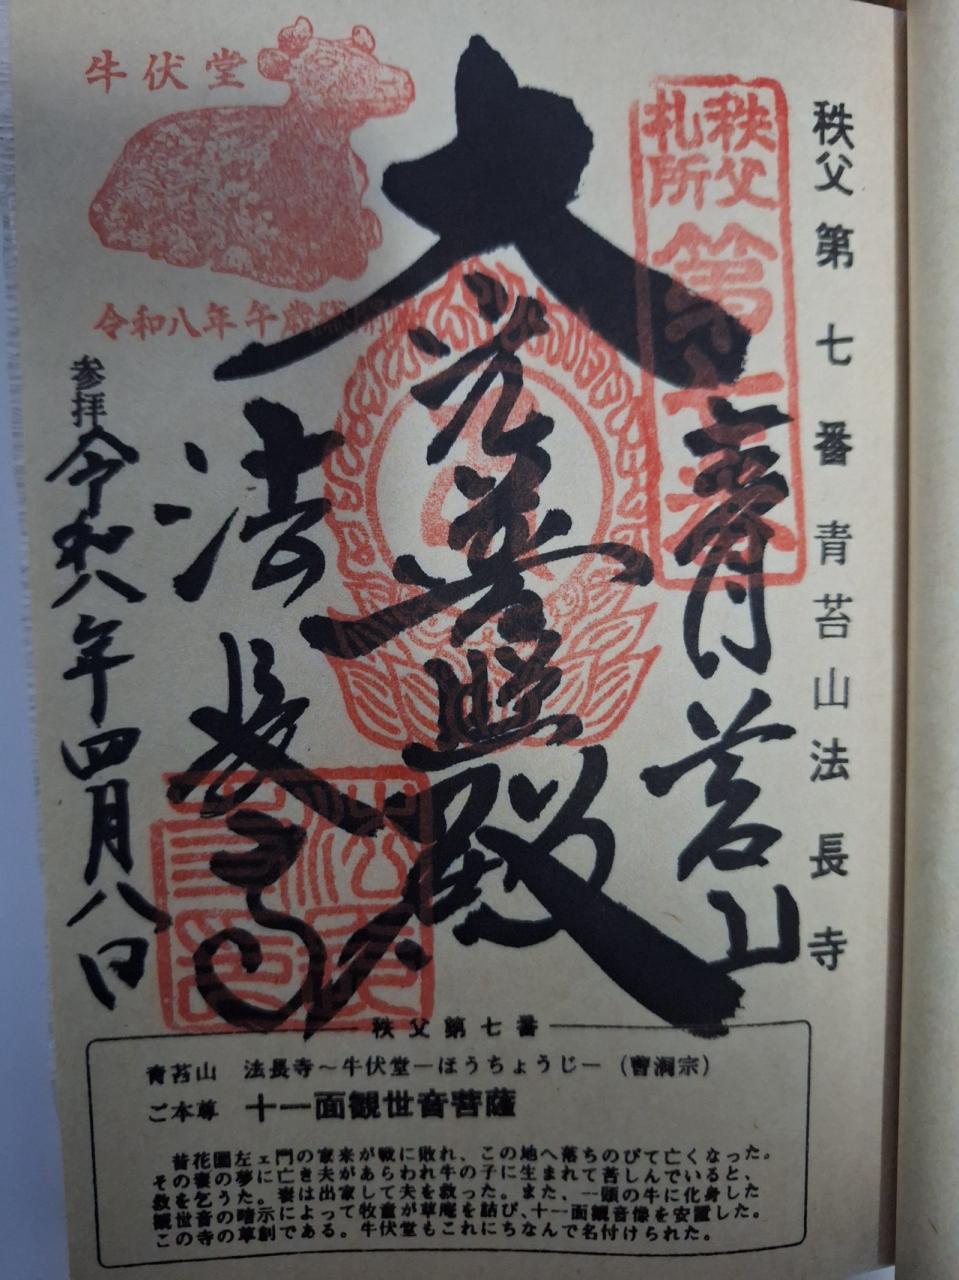 秩父第七番青苔山法長寺
秩父
札所
第七番
青苔山
大
光普照
殿
法長寺
牛伏堂
令和八年午歳
参拝
令和八年四月八日
秩父第七番
青苔山　法長寺～牛伏堂－ほうちょうじ－（曹洞宗）
ご本尊　十一面観世音菩薩
昔花園左ェ門の家来が戦に敗れ、この地へ落ちのびて亡くなった。
その妻の夢に亡き夫があらわれ牛の子に生まれて苦しんでいると、
救を乞うた。妻は出家して夫を救った。また、一頭の牛に化身した
観世音の暗示によって牧童が草庵を詰び、十一面観音像を安置した。
この寺の草創である。牛伏堂もこれにちなんで名付けられた。